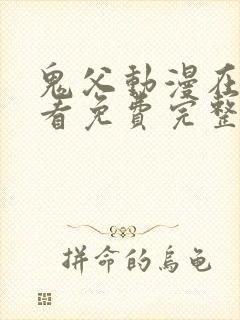 鬼父動漫在
看免費完整
拼命的烏龜